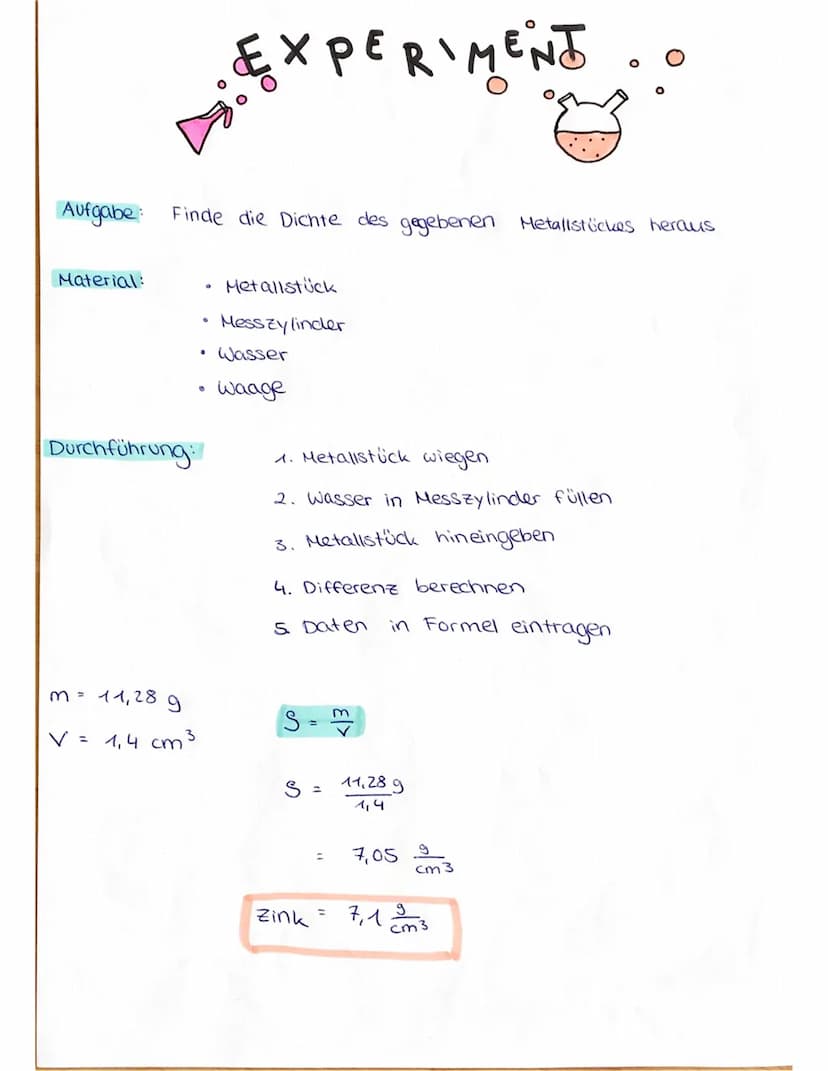 EXPERIMENT
Aufgabe: Finde die Dichte des gegebenen Metallstückes heraus
Material:
• Metallstück
• Messzylinder
• Wasser
• Waage
Durchführung:
1. Metallstück wiegen
2. Wasser in Messzylinder füllen
3. Metallstück hineingeben
4. Differenz berechnen
5. Daten in Formel eintragen
m = 11,28 g
V = 1,4 cm³
S = m/V
S = 11,28 g/1,4
= 7,05 g/cm³
Zink = 7,1 g/cm³